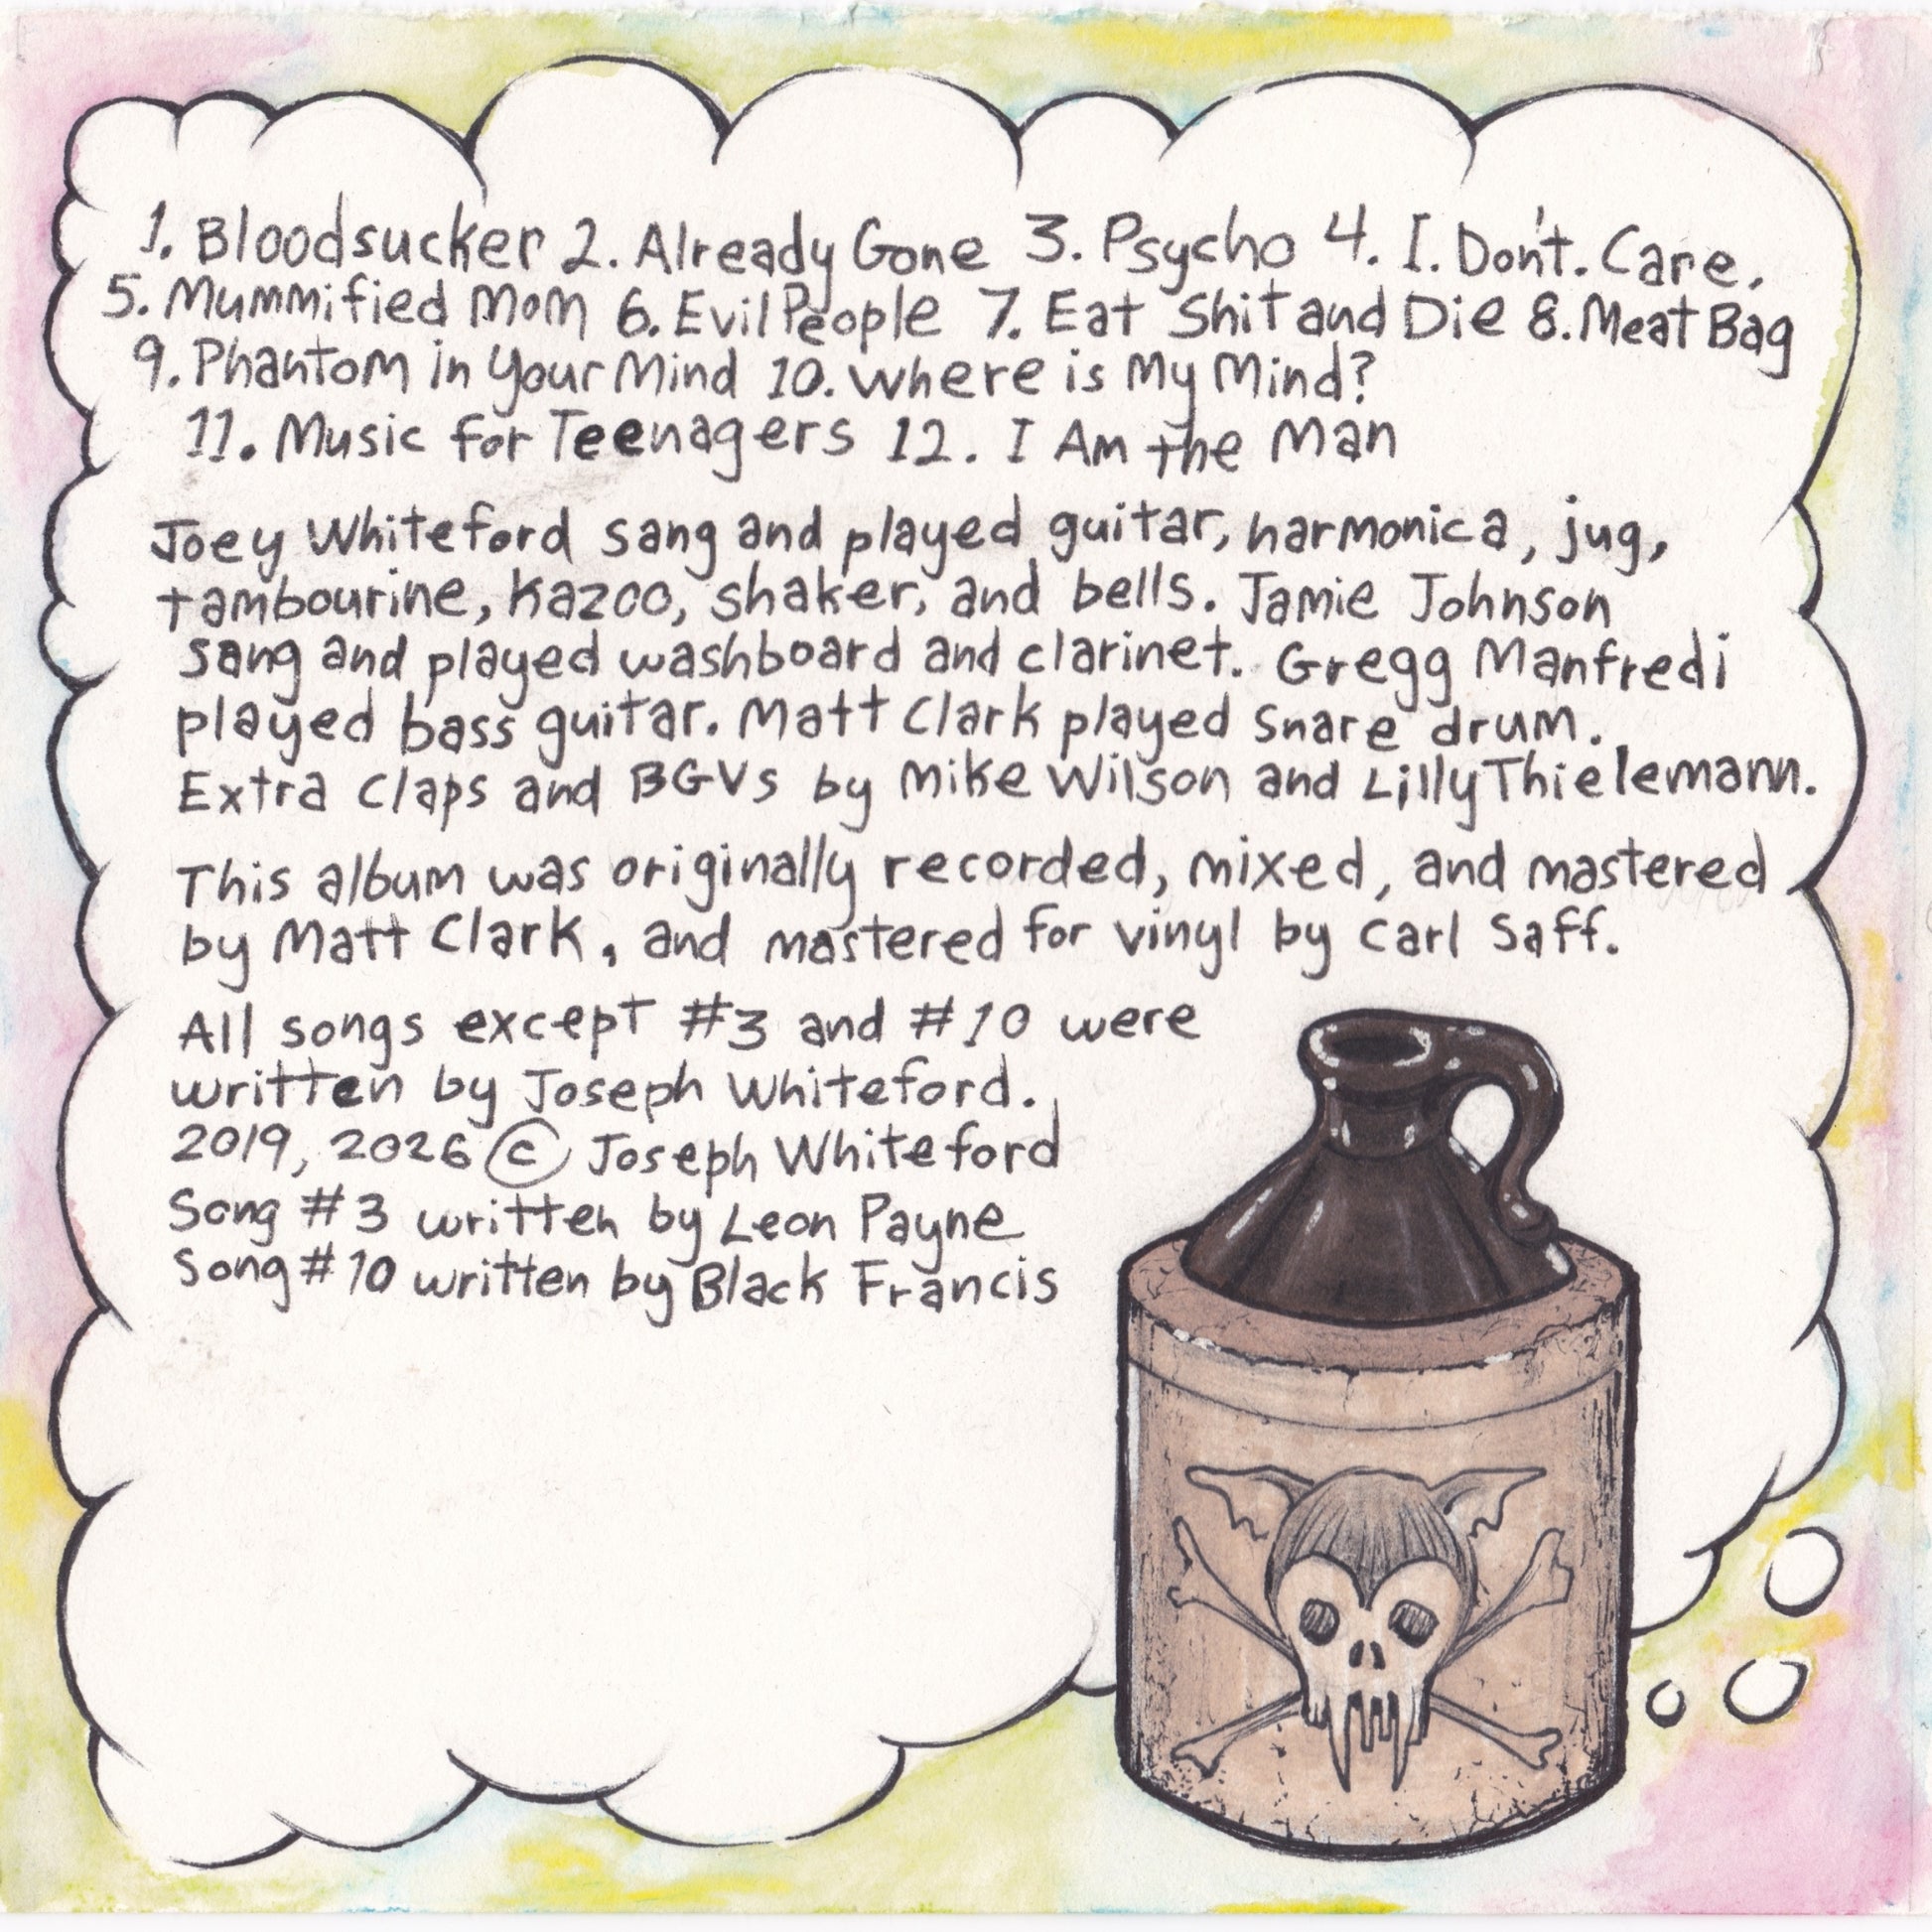 1. Bloodsucker 2. Already Gone 3. Psycho 4. I. Don't. Care.
5. Mummified Mom 6. Evil People 7. Eat Shit and Die 8. Meat Bag
9. Phantom in Your Mind 10. Where is My Mind?
11. Music for Teenagers 12. I Am the Man
Joey Whiteford sang and played guitar, harmonica, jug,
tambourine, kazoo, shaker, and bells. Jamie Johnson
sang and played washboard and clarinet. Gregg Manfredi
played bass guitar. Matt Clark played snare drum.
Extra claps and BGVs by Mike Wilson and Lilly Thielemann.
This album was originally recorded, mixed, and mastered
by Matt Clark, and mastered for vinyl by Carl Saff.
All songs except #3 and #10 were
written by Joseph Whiteford.
2019, 2026 © Joseph Whiteford
Song #3 written by Leon Payne
Song #10 written by Black Francis